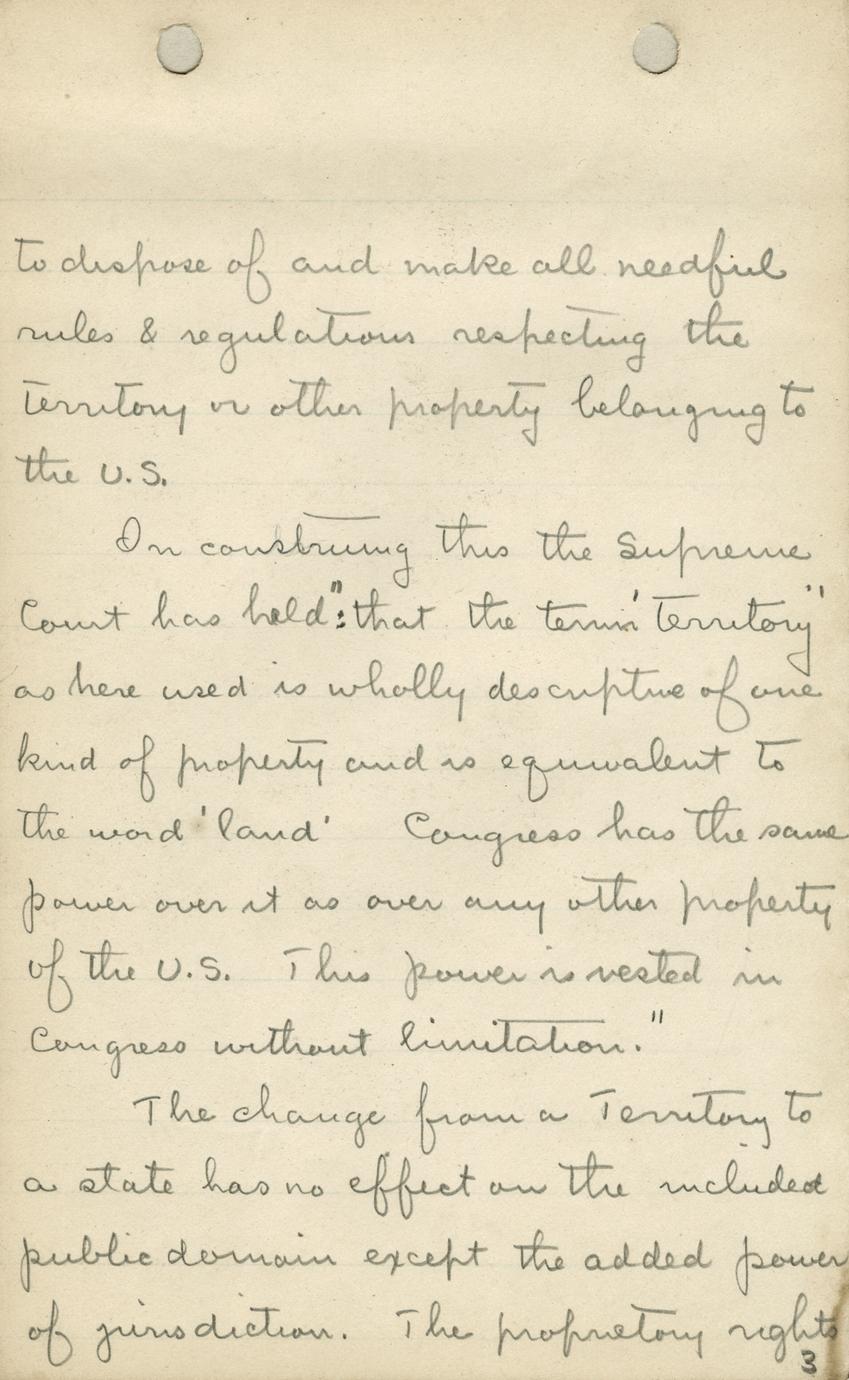 to dispose of and make all needful
rules & regulations respecting the
territory or other property belonging to
the U.S.
In construing this the Supreme
Court has held": that the term 'territory"
as here used is wholly descriptive of one
kind of property and is equivalent to
the word 'land' Congress has the same
power over it as over any other property
of the U.S. This power is vested in
Congress without limitation."
The change from a Territory to
a state has no effect on the included
public domain except the added power
of jurisdiction. The proprietory rights
3